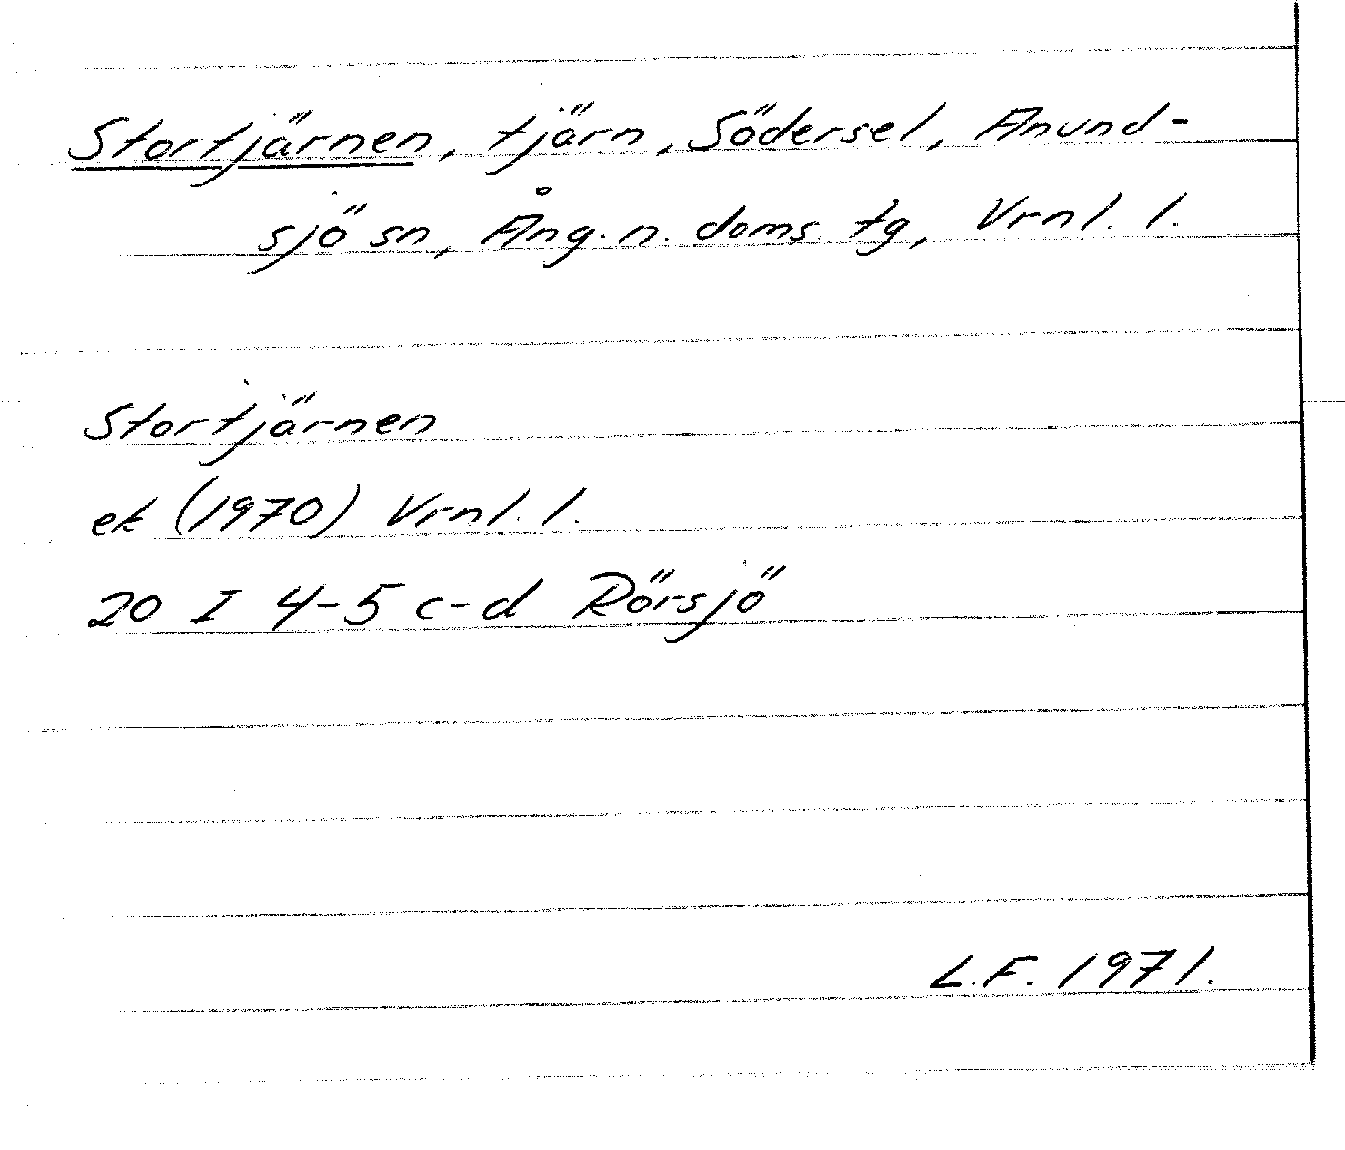 Stortjärnen, tjärn, Södersel, Anund-
sjö sn, Ång. n. doms. tg, Vrnl. l.
Stortjärnen
ek (1970) Vrnl. l.
20 I 4-5 c-d Rörsjö
L.F. 1971.